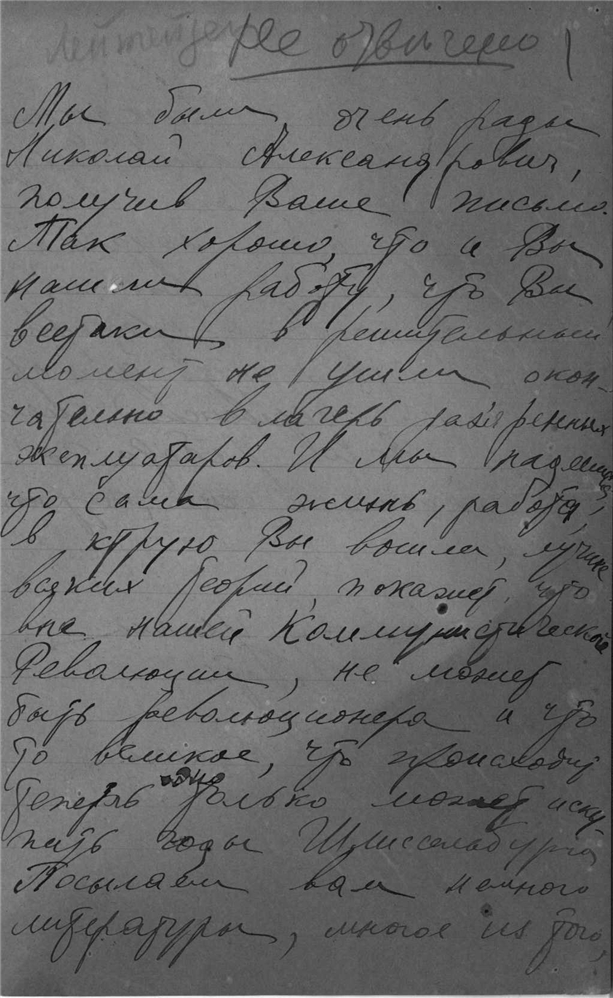 Не отвечено
Мы были очень рады
Николай Александрович,
получив Ваше письмо.
Так хорошо, что и Вы
нашли работу, что Вы
всетаки, в решительный
момент не ушли окон-
чательно в лагерь разъяренных
эксплуатаров. И мы надеемся,
что сама жизнь, работа,
в ктрую Вы вошли, лучше
всяких теорий, покажет, что
вне нашей Коммунистической
Революции, не может
быть революционера и что
то великое, что происходит
теперь одно только может иску-
пить годы Шлиссельбурга
Посылаем вам немного
литературы, многое из того,